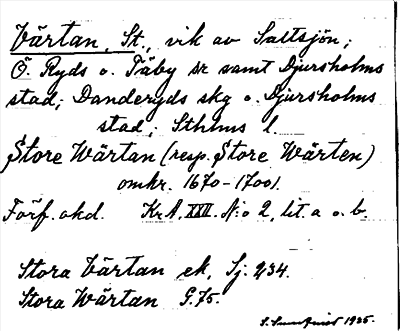 Värtan, St., vik av Saltsjön;
Ö. Ryds o. Täby sr samt Djursholms
stad; Danderyds skg o. Djursholms
stad; Sthlms l.
Store Wärtan (resp. Store Wärten)
omkr. 1670-1700l.
Förf. okd. KrA, XXII. N:o 2, lit. a o. b.
Stora Värtan ek, Sj. 234.
Stora Wärtan G. 75.
1935.